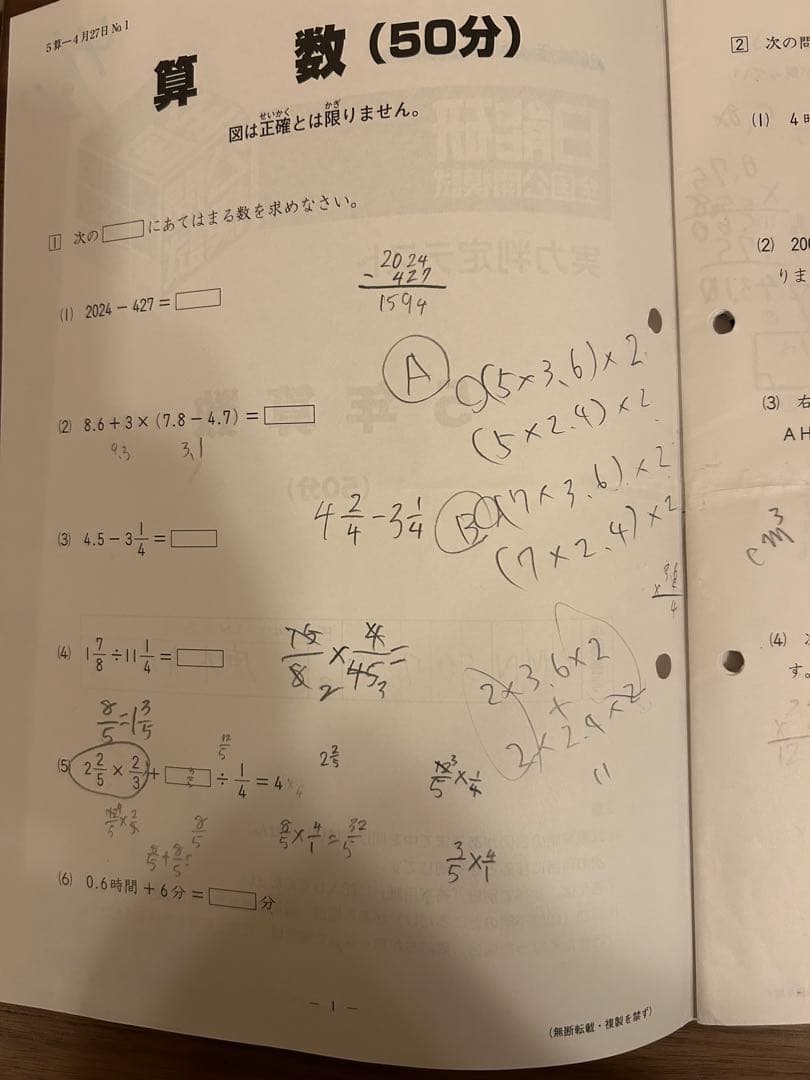 5算—4月27日 No.1
算 数 (50分)
せいかく かぎ
図は正確とは限りません。
1 次の□にあてはまる数を求めなさい。
2024
- 427
1594
(1) 2024 − 427 = □
A (5×3.6)×2
(5×2.4)×2
(2) 8.6 + 3 × (7.8 − 4.7) = □
9.3 3.1
B (7×3.6)×2
(7×2.4)×2
4 2/4 − 3 1/4
(3) 4.5 − 3 1/4 = □
(4) 1 7/8 ÷ 11 1/4 = □
15/8 2 × 4/45 3 =
2×3.6×2
+
2×2.4×2
8/5 = 1 3/5
(5) 2 2/5 × 2/3 + □ ÷ 1/4 = 4
12/5
2 2/5
12/5 3 × 1/4
8/5
8/5 + 8/5 =
8/5 × 4/1 = 32/5
3/5 × 4/1
(6) 0.6時間 + 6分 = □分
— 1 —
(無断転載・複製を禁ず)
2 次の問
(1) 4時
(2) 200
りま
(3) 右
AH
cm³
(4) 次
す。